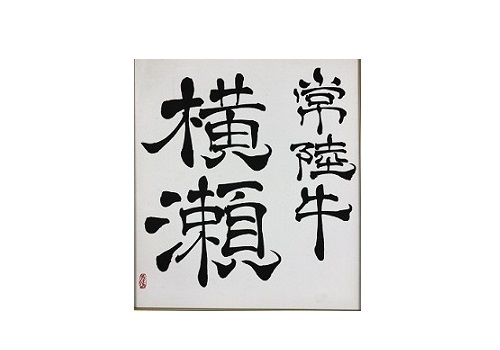 常陸牛
横瀬